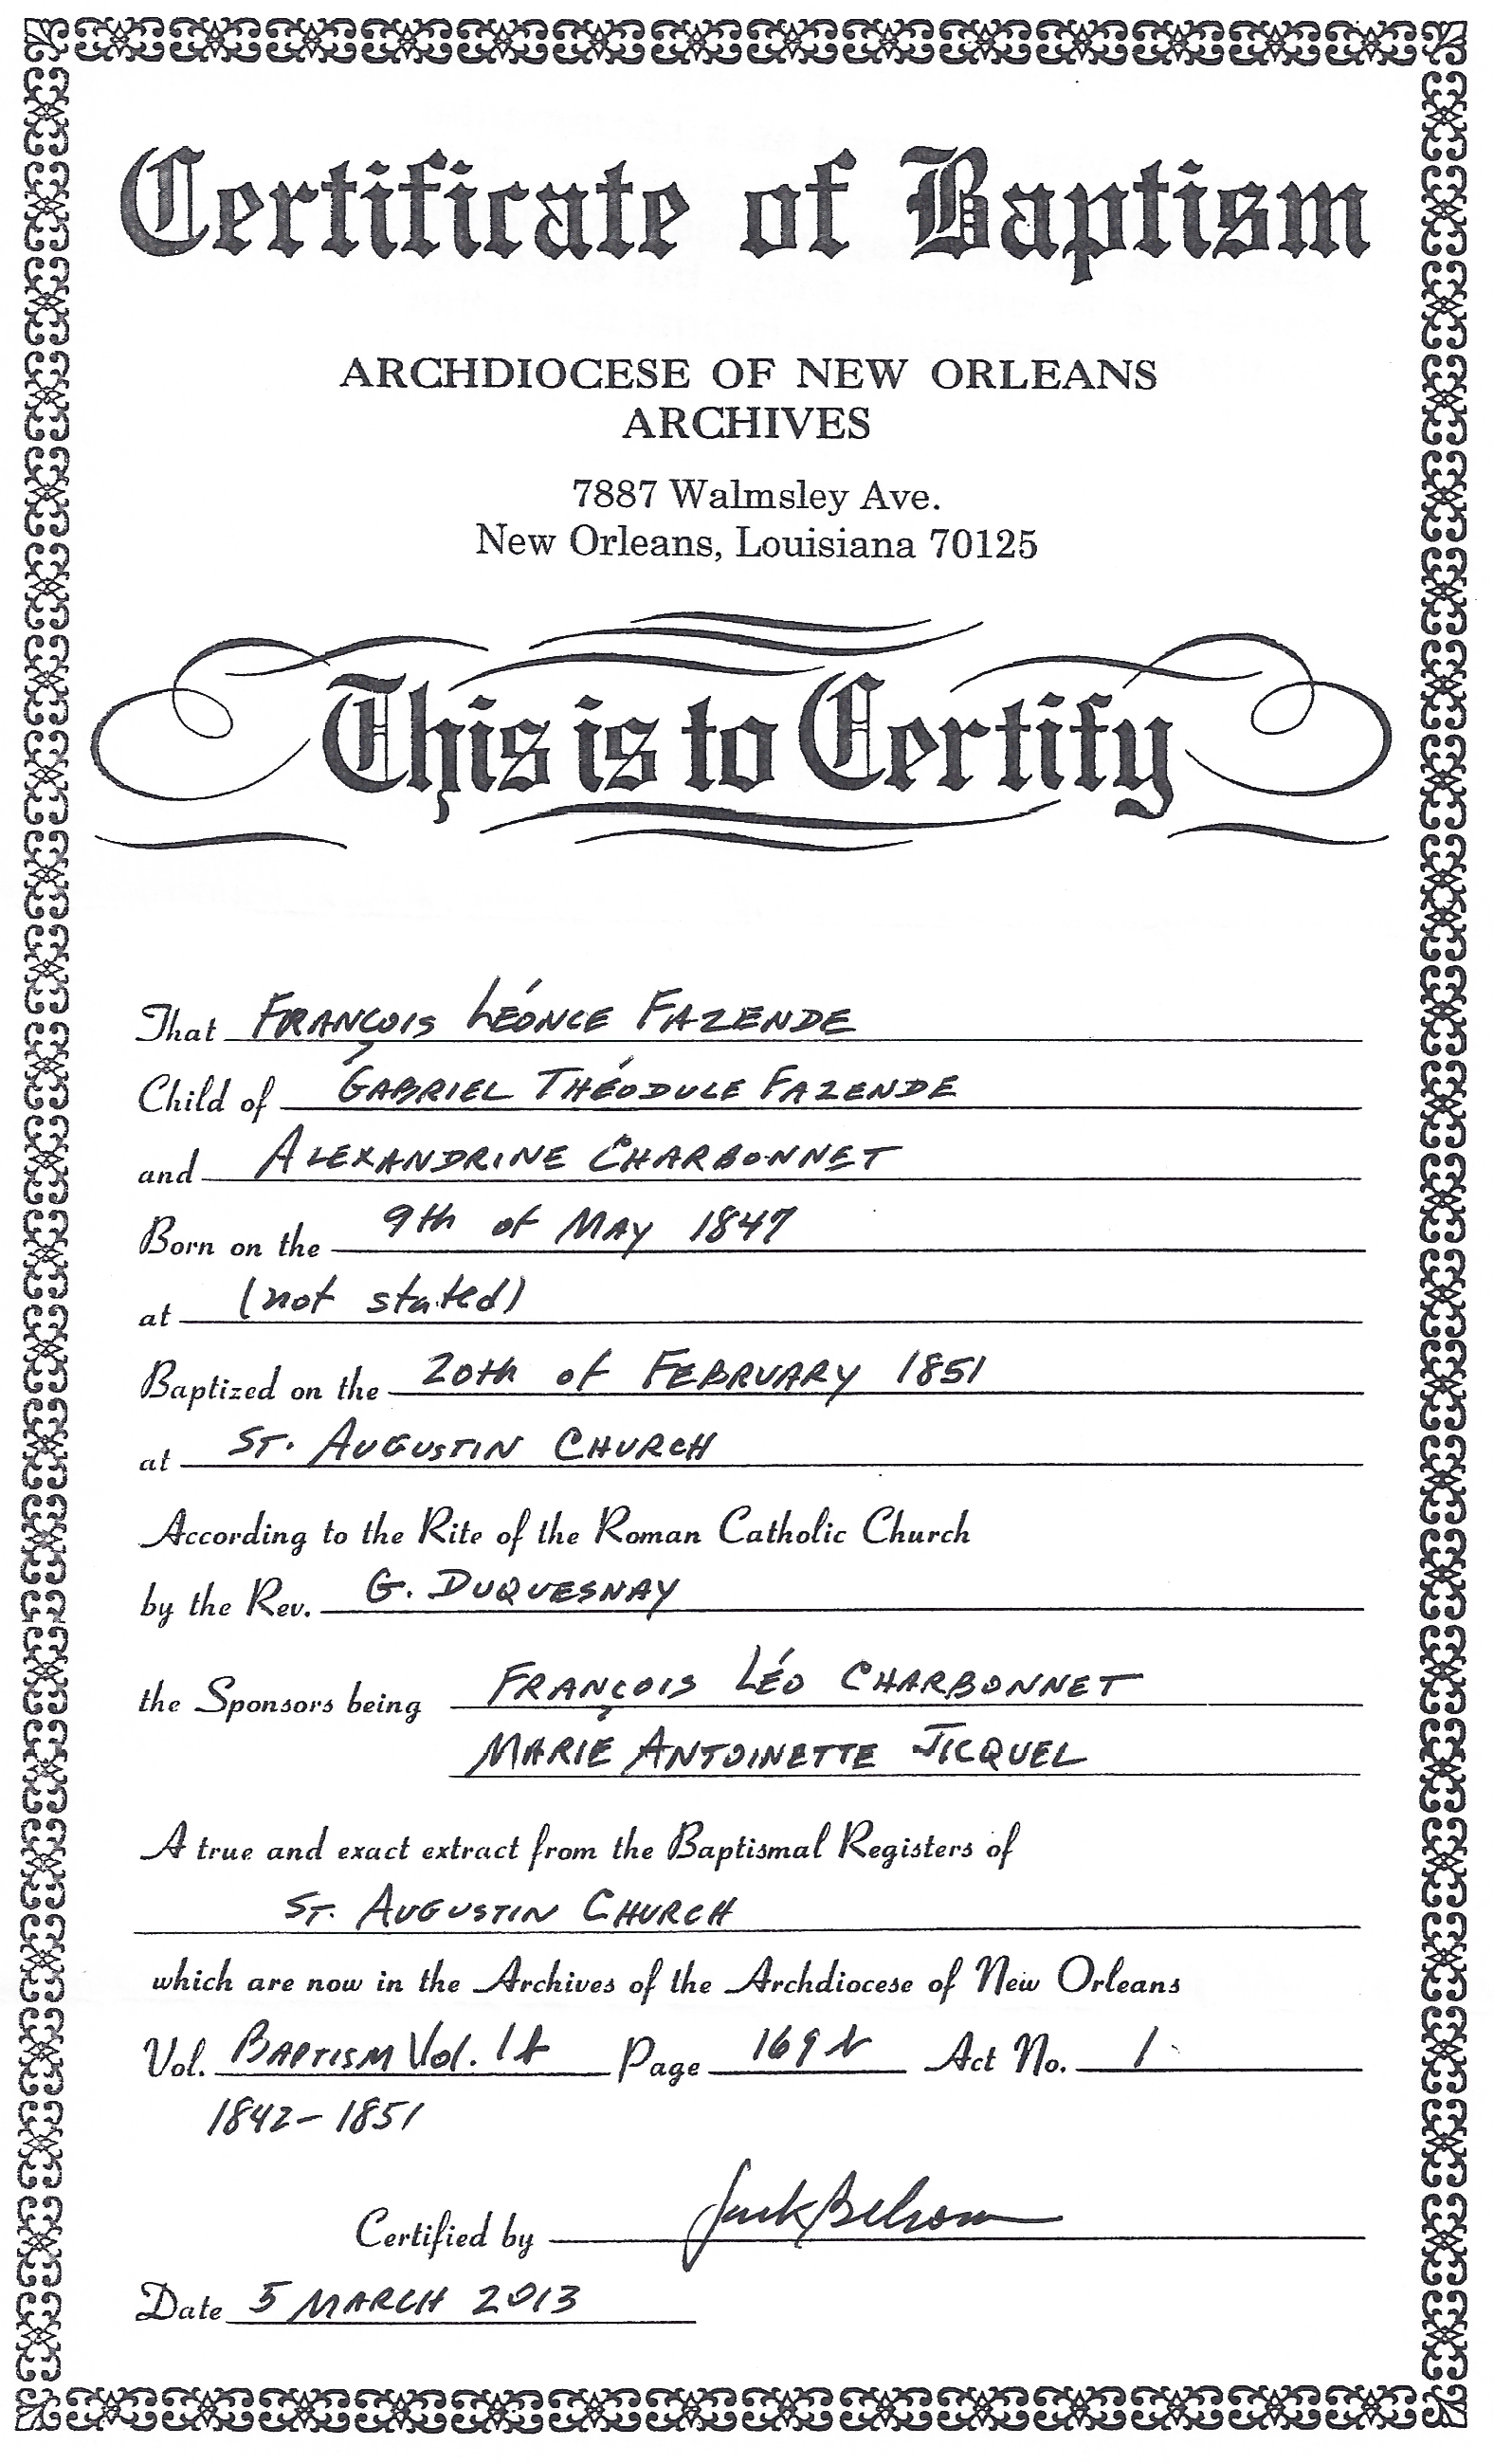 Certificate of Baptism
ARCHDIOCESE OF NEW ORLEANS
ARCHIVES
7887 Walmsley Ave.
New Orleans, Louisiana 70125
This is to Certify
That FRANÇOIS LÉONCE FAZENDE
Child of GABRIEL THÉODULE FAZENDE
and ALEXANDRINE CHARBONNET
Born on the 9th of MAY 1847
at (not stated)
Baptized on the 20th of FEBRUARY 1851
at ST. AUGUSTIN CHURCH
According to the Rite of the Roman Catholic Church
by the Rev. G. DUQUESNAY
the Sponsors being FRANÇOIS LÉO CHARBONNET
MARIE ANTOINETTE JICQUEL
A true and exact extract from the Baptismal Registers of
ST. AUGUSTIN CHURCH
which are now in the Archives of the Archdiocese of New Orleans
Vol. BAPTISM Vol. Page Act No. 1
1842-1851
Certified by Jack Belsom
Date 5 MARCH 2013